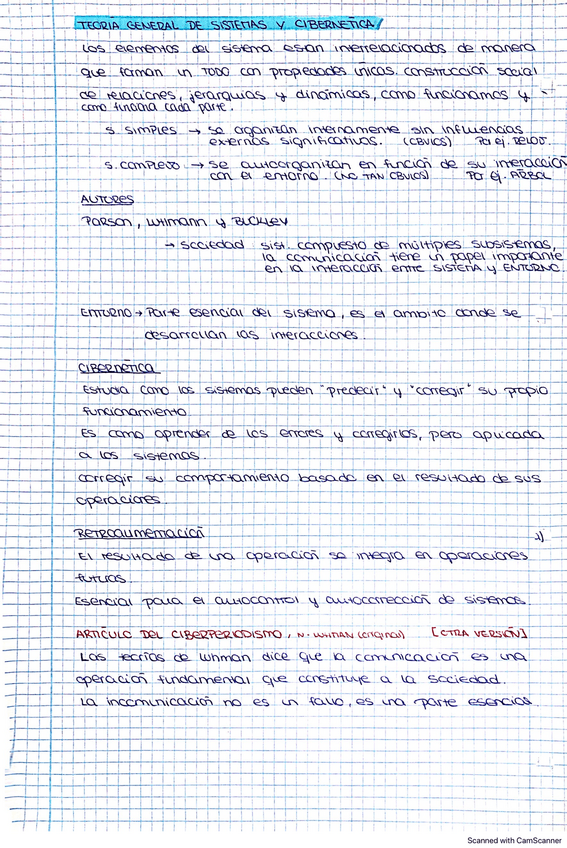 TEORIA GENERAL DE SISTEMAS Y CIBERNETICA/
Los elementos del sistema están interrelacionados de manera
que forman un TODO con propiedades únicas. construcción social
de relaciones, jerarquías y dinámicas, como funcionamos y
como funciona cada parte.
S. SIMPLES → se organizan internamente sin influencias
externas significativos. (OBVIOS) Por ej. RELOJ.
S. COMPLEJO → se autoorganizan en función de su interacción
con el entorno. (NO TAN OBVIOS) Por ej. ÁRBOL
AUTORES
PARSON, LUHMANN y BUCKLEY
→ sociedad sist. compuesto de múltiples subsistemas,
la comunicación tiene un papel importante
en la interacción entre SISTEMA y ENTORNO.
ENTORNO → Parte esencial del sistema, es el ambito donde se
desarrollan las interacciones.
CIBERNÉTICA
Estudia como los sistemas pueden "predecir" y "corregir" su propio
funcionamiento
Es como aprender de los errores y corregirlos, pero aplicada
a los sistemas.
corregir su comportamiento basado en el resultado de sus
operaciones.
RETROALIMENTACIÓN
El resultado de una operación se integra en operaciones
futuras.
Esencial para el autocontrol y autocorrección de sistemas.
ARTÍCULO DEL CIBERPERIODISMO, N. LUHMAN (original) [OTRA VERSIÓN]
Las teorías de Luhman dice que la comunicación es una
operación fundamental que constituye a la sociedad.
La incomunicación no es un fallo, es una parte esencial.
Scanned with CamScanner